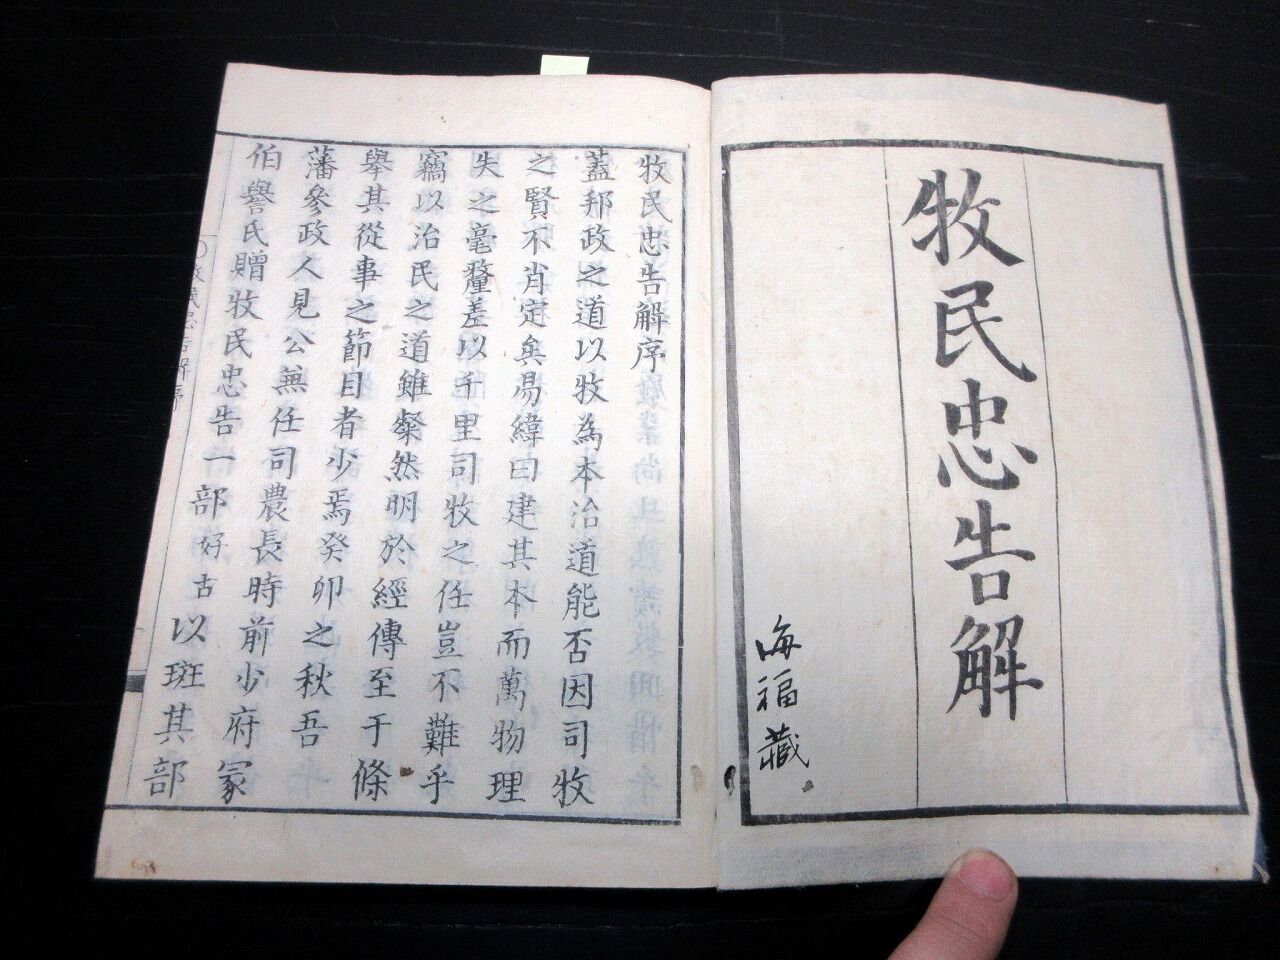 牧民忠告解
海福藏
牧民忠告解序
蓋邦政之道以牧為本治道能否因司牧
之賢不肖定矣易緯曰建其本而萬物理
失之毫釐差以千里司牧之任豈不難乎
竊以治民之道雖粲然明於經傳至于條
舉其從事之節目者少焉癸卯之秋吾
藩參政人見公無任司農長時前少府冢
伯譽氏贈牧民忠告一部好古以班其部
牧民忠告解序